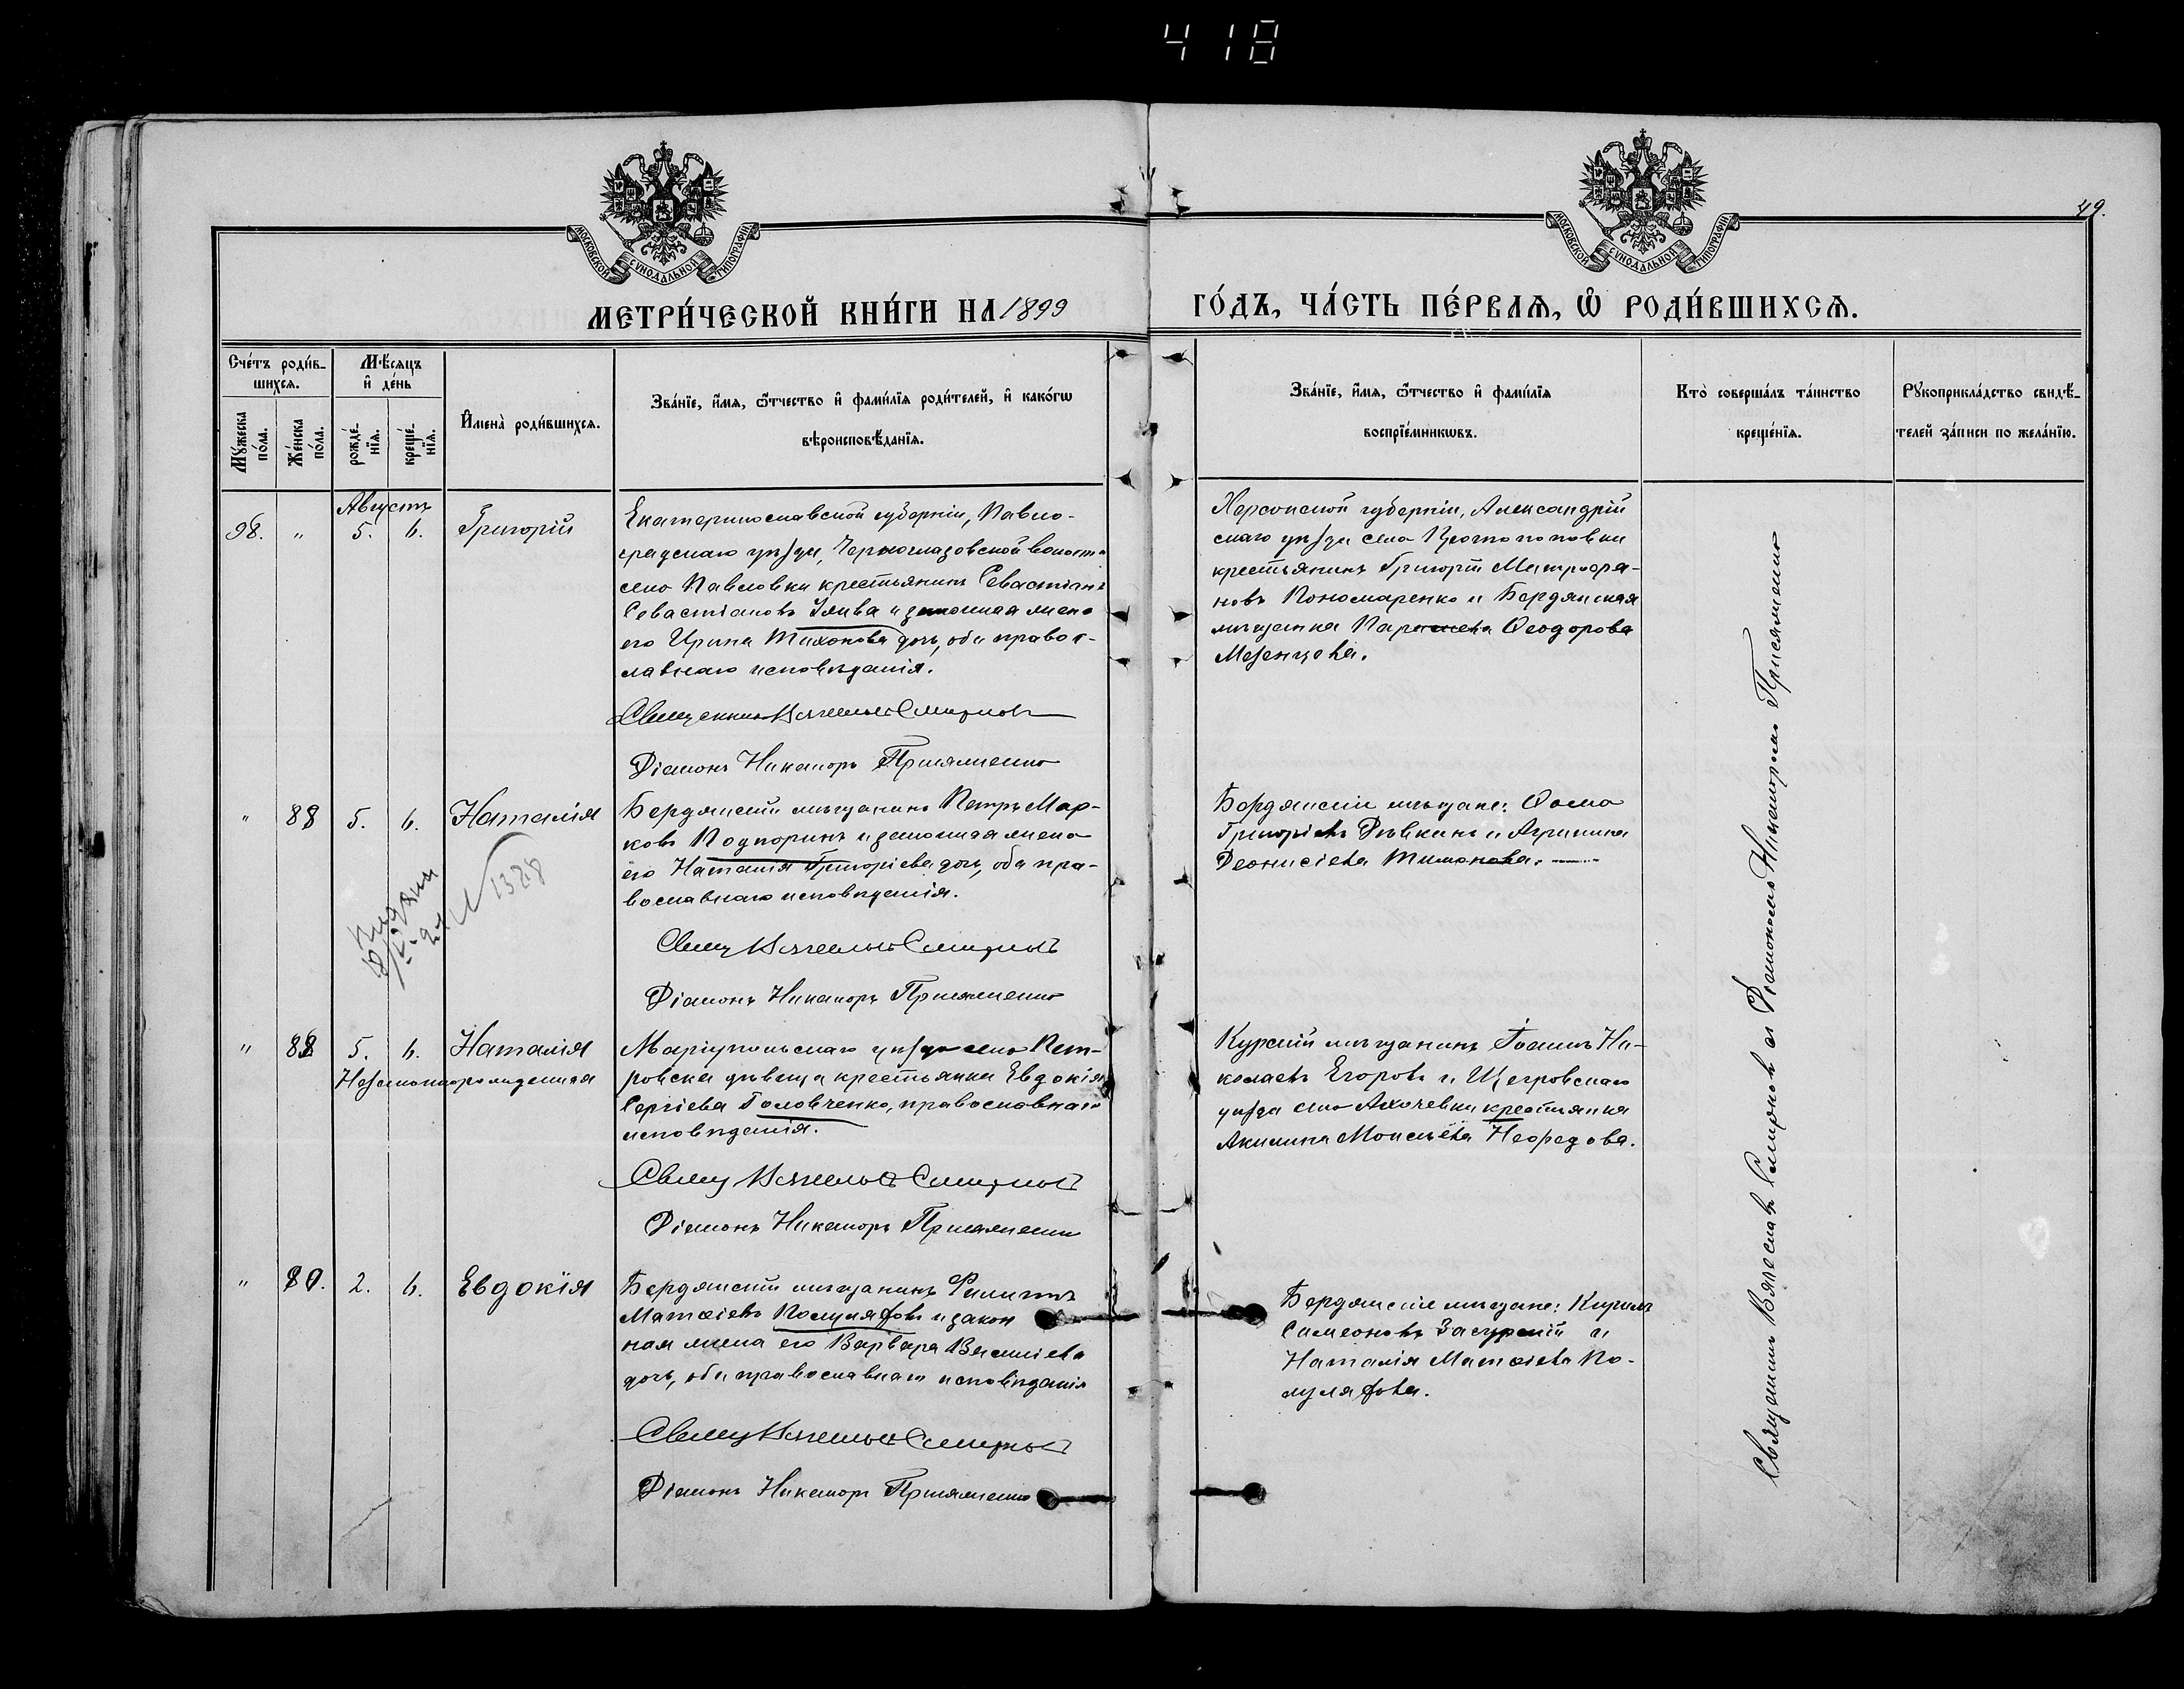 418
49.
МОСКОВСКОЙ СѴНОДАЛЬНОЙ ТИПОГРАФІИ
МОСКОВСКОЙ СѴНОДАЛЬНОЙ ТИПОГРАФІИ
МЕТРИ́ЧЕСКОЙ КНИ́ГИ НА 1899
ГО́ДЪ, ЧА́СТЬ ПЕ́РВАѦ, Ѡ҆ РОДИ́ВШИХСѦ.
Сче́тъ роди́в-
шихсѧ.
Мꙋ́жеска
по́ла.
Же́нска
по́ла.
Мѣ́сѧцъ
и҆ де́нь
рожде́-
нїѧ.
креще́-
нїѧ.
И҆мена̀ роди́вшихсѧ.
Зва́нїе, и҆́мѧ, ѻ҆́тчество и҆ фами́лїѧ роди́телей, и҆ како́гѡ
вѣроисповѣ́данїѧ.
Зва́нїе, и҆́мѧ, ѻ҆́тчество и҆ фами́лїѧ
воспрїе́мникѡвъ.
Кто̀ соверша́лъ та́инство
креще́нїѧ.
Рꙋкоприкла́дство свидѣ́-
телей за́писи по жела́нїю.
Августъ
98. " 5. 6. Григорій
Екатеринославской губерніи, Павло-
градскаго уѣзда, Черноглазовской волости
села Павловки крестьянинъ Севастіанъ
Севастіановъ и законная жена
его Ирина Тихонова дочь, оба правос-
лавнаго исповѣданія.
Священникъ Вячеславъ Смирновъ
Діаконъ Никаноръ Присяженко
Херсонской губерніи, Александрій
скаго уѣзда села Протопоповки
крестьянинъ Григорій Митрофа-
новъ Пономаренко и Бердянская
мѣщанка Параскева Ѳеодорова
Мезенцова.
" 88 5. 6. Наталія
Бердянскій мѣщанинъ Петръ Мар-
ковъ Подпоринъ и законная жена
его Наталія Григоріева дочь, оба пра-
вославнаго исповѣданія.
Свящ Вячеславъ Смирновъ
Діаконъ Никаноръ Присяженко
Бердянскіе мѣщане: Ѳома
Григорьевъ Рѣвкинъ и Агрипина
Деонисіева Тимонова.
1328
" 5. 6. Наталія
Незаконнорожденная
Маріупольскаго уѣзда села Пет-
ровска дѣвица крестьянка Евдокія
Сергіева Головченко, православнаго
исповѣданія.
Свящ Вячеславъ Смирновъ
Діаконъ Никаноръ Присяженко
Курскій мѣщанинъ Іоаннъ Ни-
колаевъ Егоровъ и Щегровскаго
уѣзда села Ахочевки крестьянка
Акилина Моисѣева Нефедова.
" 2. 6. Евдокія
Бердянскій мѣщанинъ Филиппъ
Матѳіевъ и закон
ная жена его Варвара Василіева
дочь, оба православнаго исповѣданія
Свящ Вячеславъ Смирновъ
Діаконъ Никаноръ Присяженко
Бердянскіе мѣщане: Кирилъ
Симеоновъ Засурскій и
Наталія Матѳіева
Священникъ Вячеславъ Смирновъ съ Діакономъ Никаноромъ Присяженко